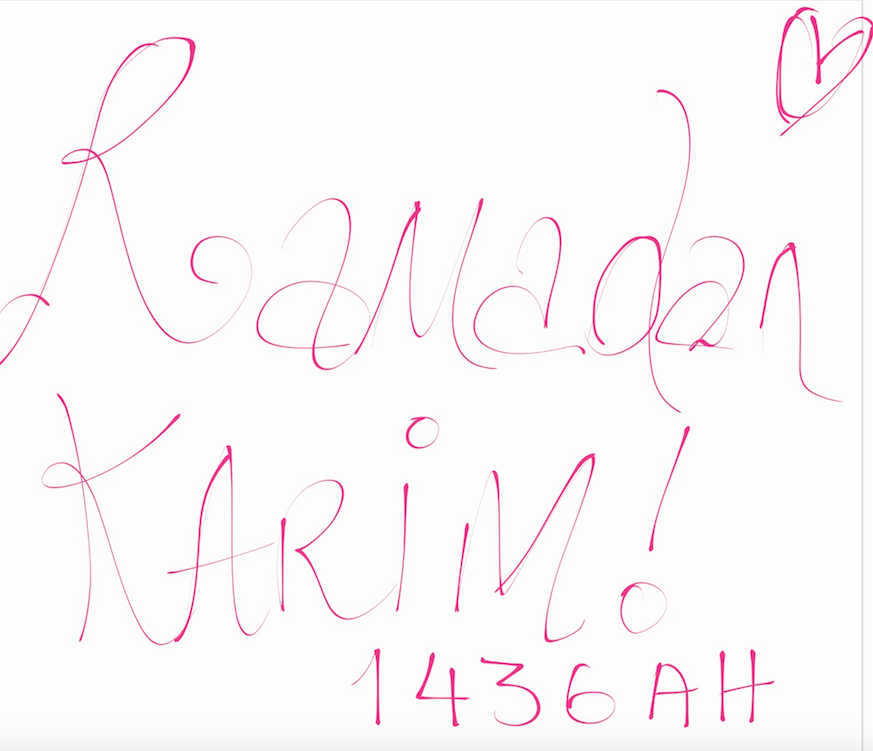 Ramadan
KARiM!
1436 AH